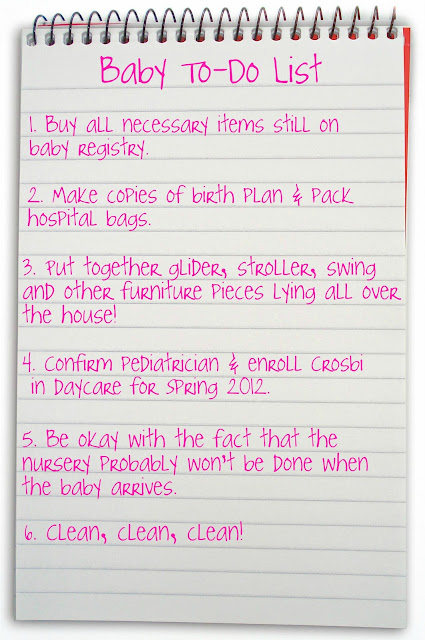 Baby To-Do List
1. Buy all necessary items still on
baby registry.
2. Make copies of birth plan & pack
hospital bags.
3. Put together glider, stroller, swing
and other furniture pieces lying all over
the house!
4. Confirm pediatrician & enroll Crosbi
in daycare for spring 2012.
5. Be okay with the fact that the
nursery probably won't be done when
the baby arrives.
6. Clean, clean, clean!